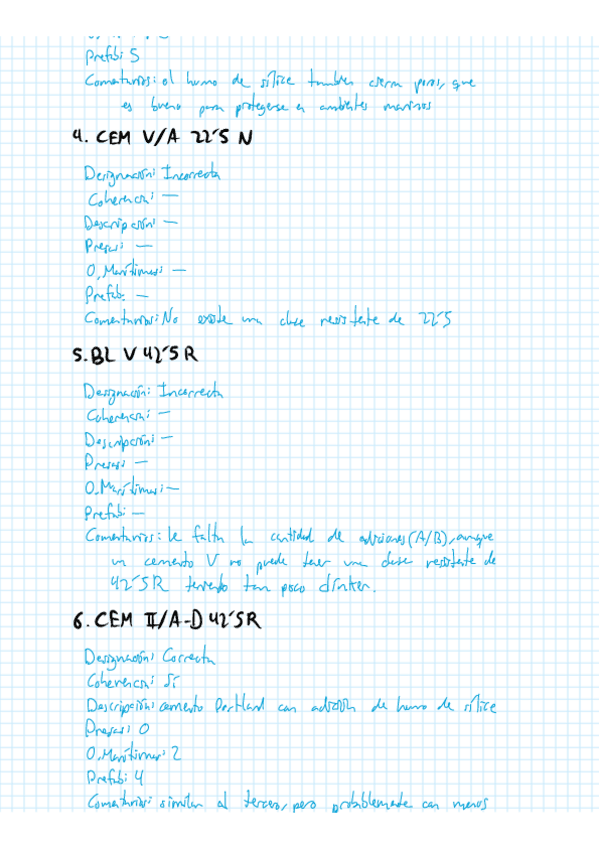 Prefab: 5
Comentarios: el humo de sílice también cierra poros, que
es bueno para protegerse en ambientes marinos
4. CEM V/A 22'5 N
Designación: Incorrecta
Coherencia: —
Descripción: —
Presas: —
O. Marítimas: —
Prefab: —
Comentarios: No existe una clase resistente de 22'5
5. BL V 42'5 R
Designación: Incorrecta
Coherencia: —
Descripción: —
Presas: —
O. Marítimas: —
Prefab: —
Comentarios: le falta la cantidad de adiciones (A/B), aunque
un cemento V no puede tener una clase resistente de
42'5 R teniendo tan poco clínker.
6. CEM II/A-D 42'5R
Designación: Correcta
Coherencia: Sí
Descripción: cemento Portland con adición de humo de sílice
Presas: 0
O. Marítimas: 2
Prefab: 4
Comentarios: similar al tercero, pero probablemente con menos